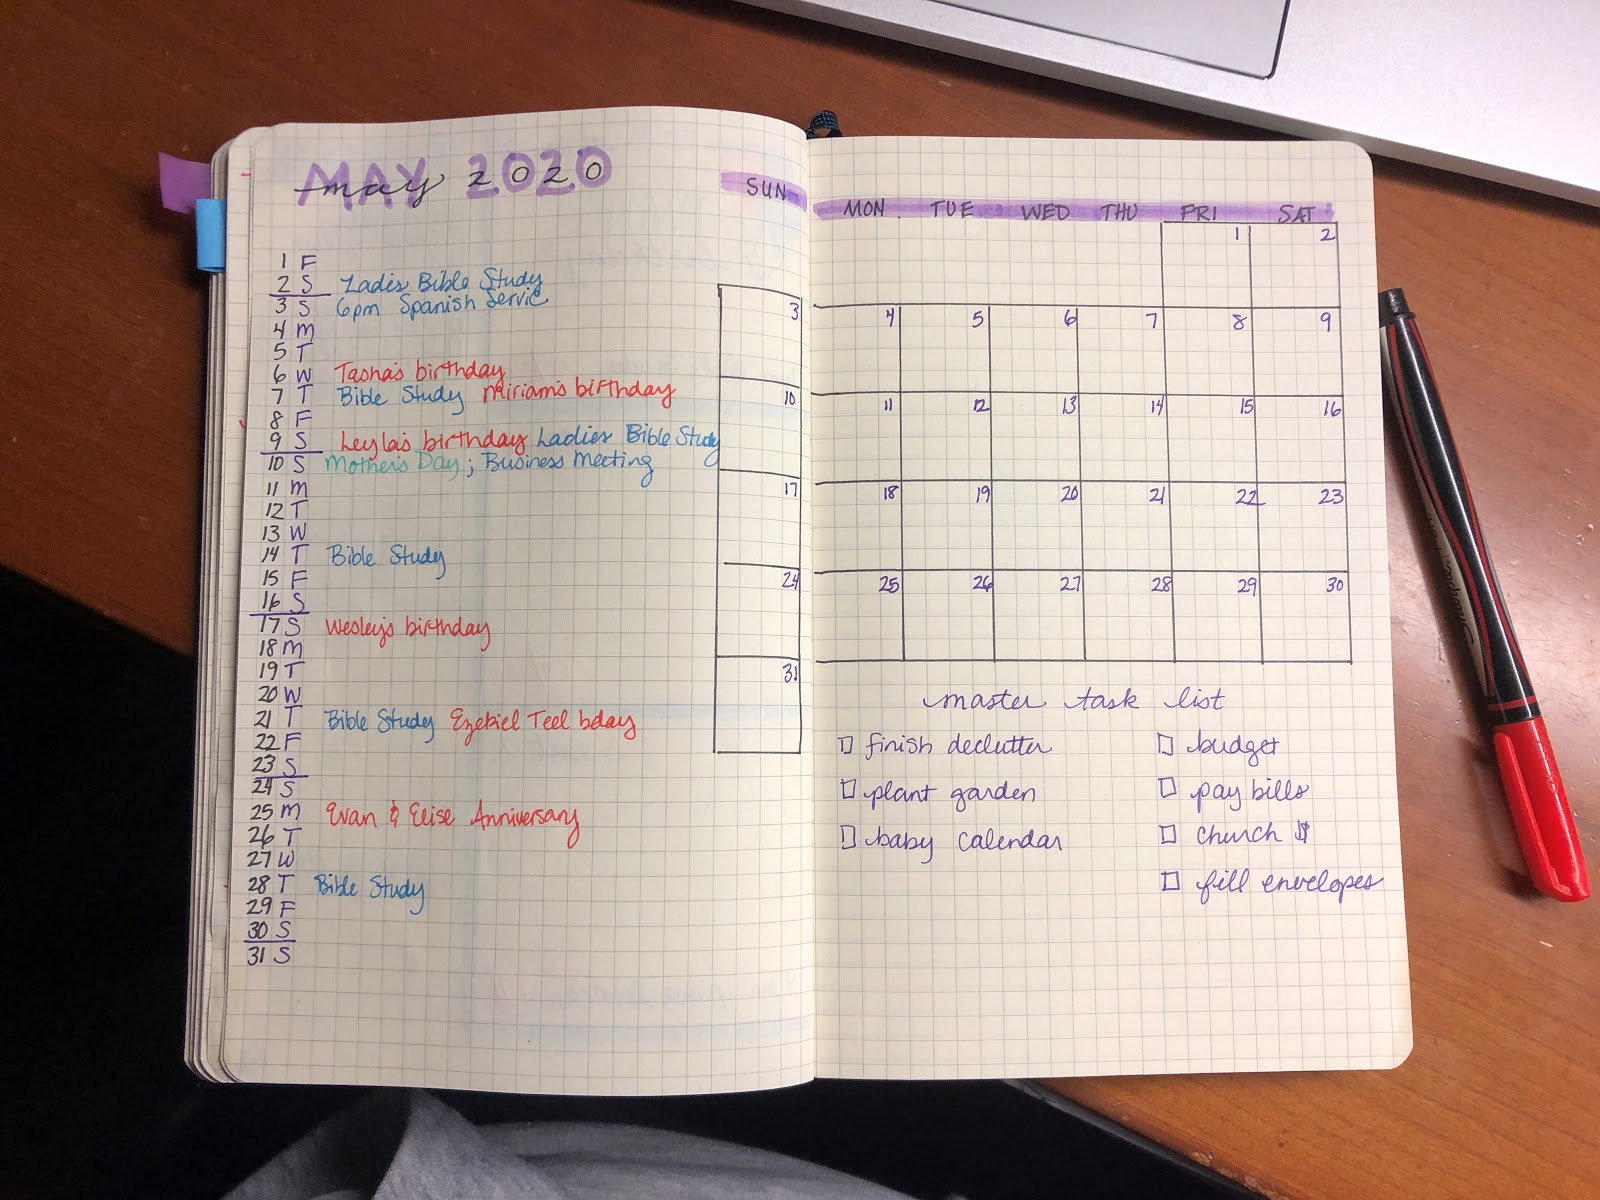 MAY 2020
may 2020
1 F
2 S Ladies Bible Study
3 S 6pm Spanish Servic
4 M
5 T
6 W Tasha's birthday
7 T Bible Study Miriam's birthday
8 F
9 S Leyla's birthday Ladies Bible Study
10 S Mother's Day; Business Meeting
11 M
12 T
13 W
14 T Bible Study
15 F
16 S
17 S Wesley's birthday
18 M
19 T
20 W
21 T Bible Study Ezekiel Teel bday
22 F
23 S
24 S
25 M Evan & Elise Anniversary
26 T
27 W
28 T Bible Study
29 F
30 S
31 S
SUN MON TUE WED THU FRI SAT
1 2
3 4 5 6 7 8 9
10 11 12 13 14 15 16
17 18 19 20 21 22 23
24 25 26 27 28 29 30
31
master task list
finish declutter
plant garden
baby calendar
budget
pay bills
church $
fill envelopes